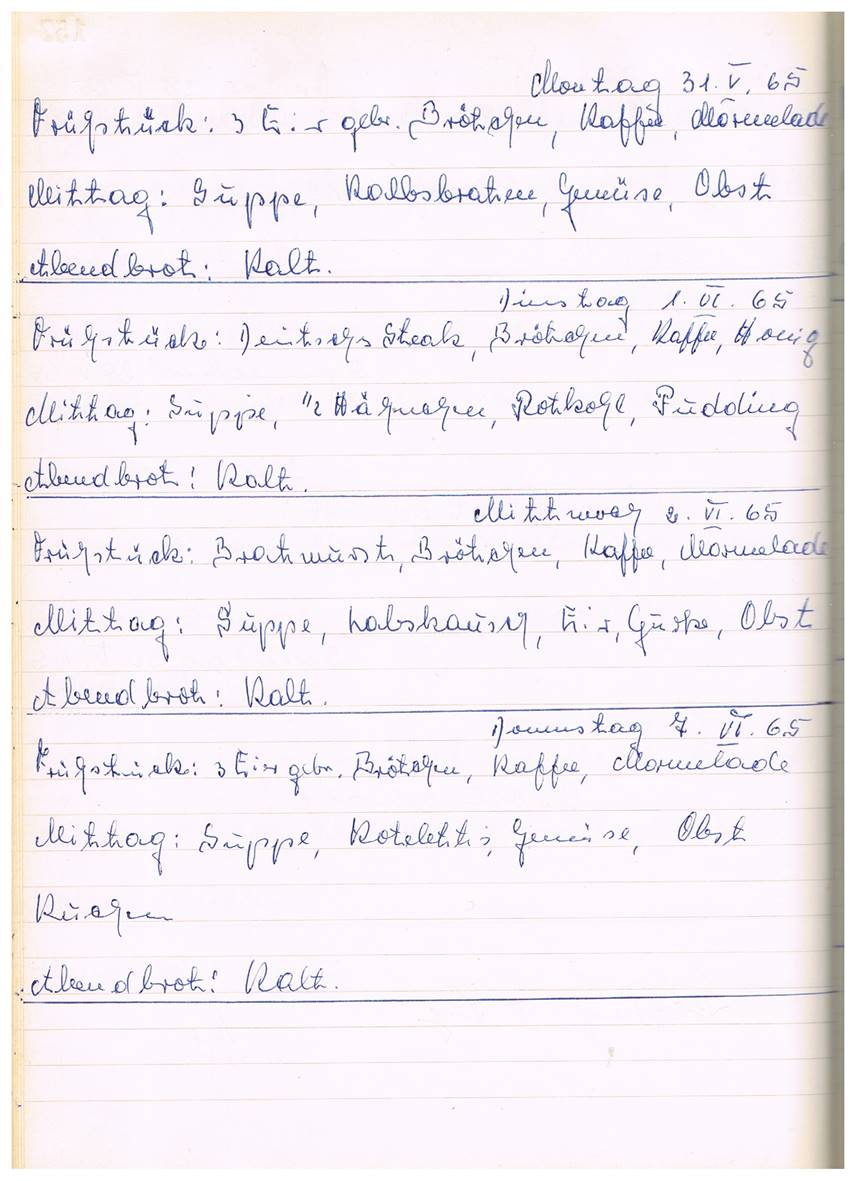 Montag 31. V. 65
Frühstück: 3 Eier gebr. Brötchen, Kaffee, Marmelade
Mittag: Suppe, Kalbsbraten, Gemüse, Obst
Abendbrot: Kalt.
Dienstag 1. VI. 65
Frühstück: Deutsches Steak, Brötchen, Kaffee, Honig
Mittag: Suppe, 1/2 Hähnchen, Rotkohl, Pudding
Abendbrot: Kalt.
Mittwoch 2. VI. 65
Frühstück: Bratwurst, Brötchen, Kaffee, Marmelade
Mittag: Suppe, Labskausch, Eier, Gurke, Obst
Abendbrot: Kalt.
Donnerstag 7. VI. 65
Frühstück: 3 Eier gebr. Brötchen, Kaffee, Marmelade
Mittag: Suppe, Kotelettes, Gemüse, Obst
Kuchen
Abendbrot: Kalt.